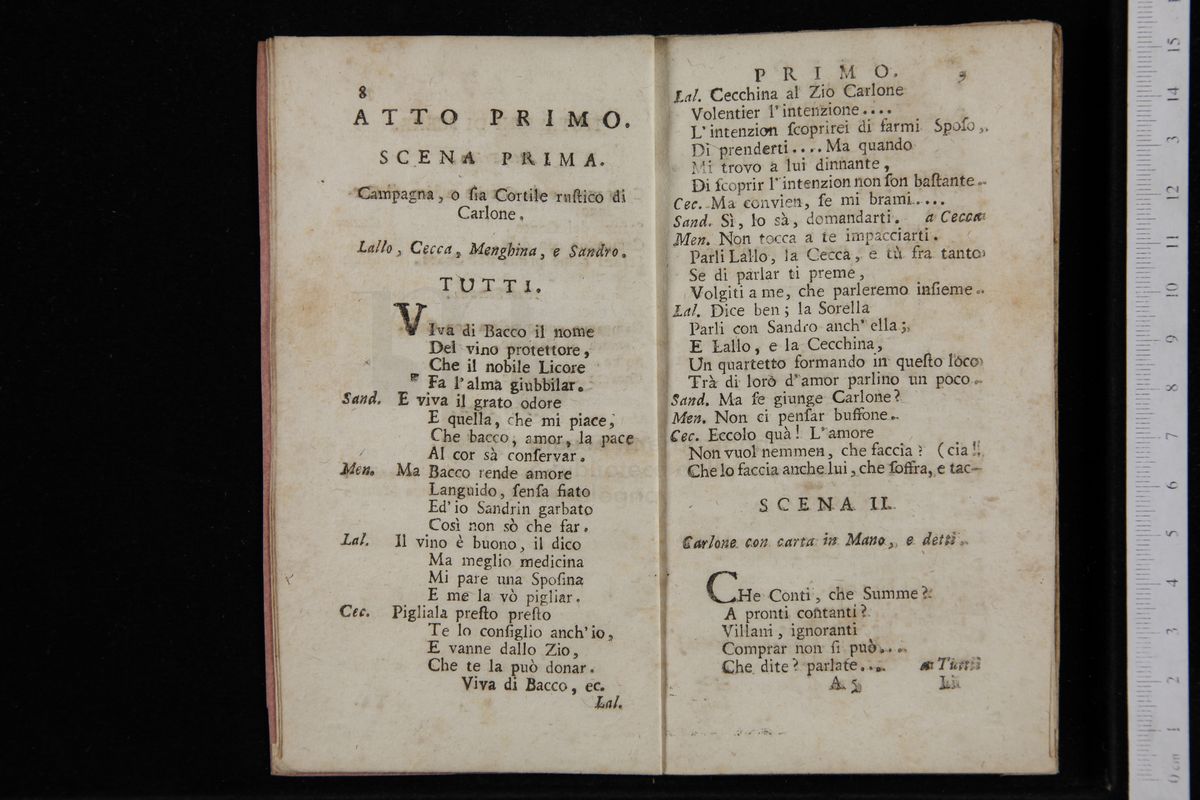 8
ATTO PRIMO.
SCENA PRIMA.
Campagna, o ſia Cortile ruſtico di
Carlone.
Lallo, Cecca, Menghina, e Sandro.
TUTTI.
VIva di Bacco il nome
Del vino protettore,
Che il nobile Licore
Fa l'alma giubbilar.
Sand. E viva il grato odore
E quella, che mi piace,
Che bacco, amor, la pace
Al cor sà conſervar.
Men. Ma Bacco rende amore
Languido, ſenſa fiato
Ed'io Sandrin garbato
Così non sò che far.
Lal. Il vino è buono, il dico
Ma meglio medicina
Mi pare una Spoſina
E me la vò pigliar.
Cec. Pigliala preſto preſto
Te lo conſiglio anch'io,
E vanne dallo Zio,
Che te la può donar.
Viva di Bacco, ec.
Lal.
PRIMO. 9
Lal. Cecchina al Zio Carlone
Volentier l'intenzione....
L'intenzion ſcoprirei di farmi Spoſo,
Di prenderti.... Ma quando
Mi trovo a lui dinnante,
Di ſcoprir l'intenzion non ſon baſtante.
Cec. Ma convien, ſe mi brami....
Sand. Sì, lo sà, domandarti. a Cecca
Men. Non tocca a te impacciarti.
Parli Lallo, la Cecca, e tù fra tanto
Se di parlar ti preme,
Volgiti a me, che parleremo inſieme.
Lal. Dice ben; la Sorella
Parli con Sandro anch' ella;
E Lallo, e la Cecchina,
Un quartetto formando in queſto loco
Trà di lorò d'amor parlino un poco.
Sand. Ma ſe giunge Carlone?
Men. Non ci penſar buffone.
Cec. Eccolo quà! L'amore
Non vuol nemmen, che faccia? (cia!
Che lo faccia anche lui, che ſoffra, e tac-
SCENA II.
Carlone con carta in Mano, e detti.
CHe Conti, che Summe?
A pronti contanti?
Villani, ignoranti
Comprar non ſi può...
Che dite? parlate... a Tutti
A 5 Li